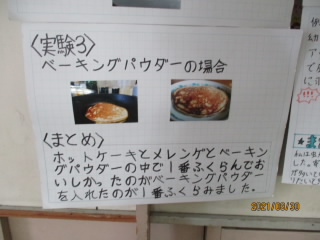 〈実験3〉
ベーキングパウダーの場合
〈まとめ〉
ホットケーキとメレンゲとベーキン
グパウダーの中で1番ふくらんでお
いしかったのがベーキングパウダー
を入れたのが1番ふくらみました。
2021/08/30